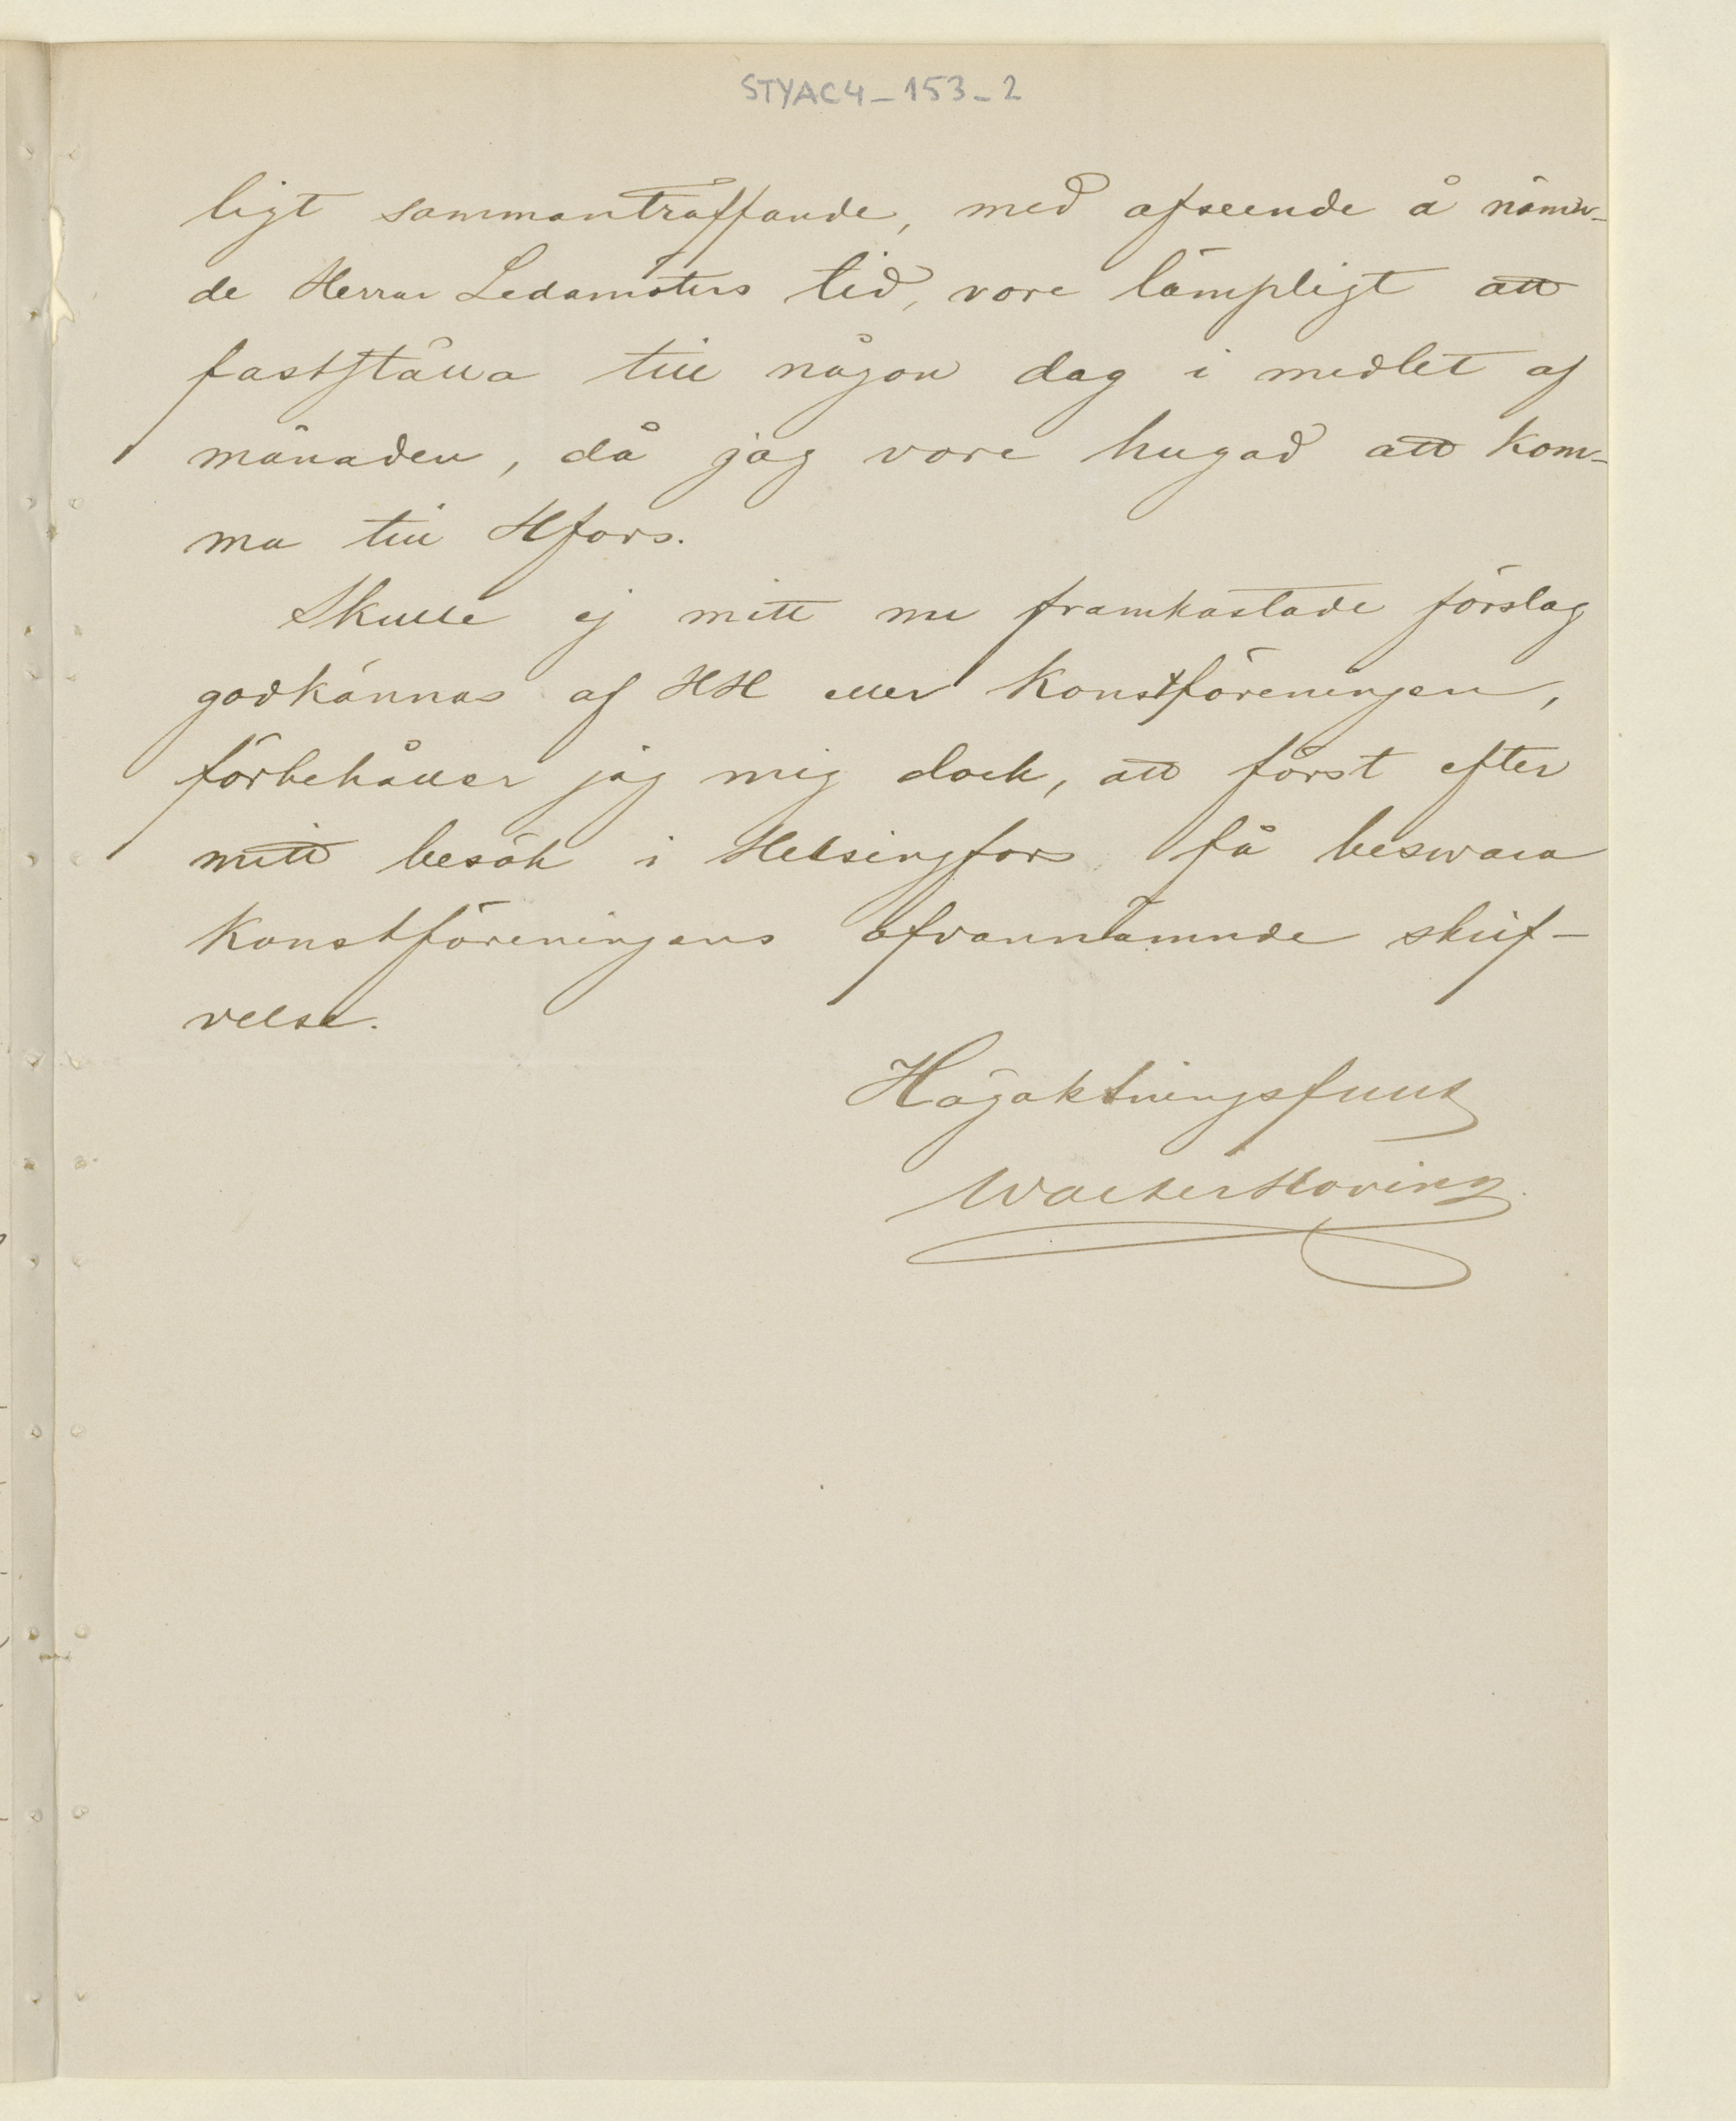 STYAC4_153_2
ligt sammanträffande, med afseende å nämn-
de Herrar Ledamöters tid, vore lämpligt att
fastställa till någon dag i medlet af
månaden, då jag vore hugad att kom-
ma till Hfors.
Skulle ej mitt nu framkastade förslag
godkännas af HH eller Konstföreningen,
förbehåller jag mig dock, att först efter
mitt besök i Helsingfors få beswara
Konstföreningens ofvannämnde skrif-
velse.
Högaktningsfullt
Walter Hoving